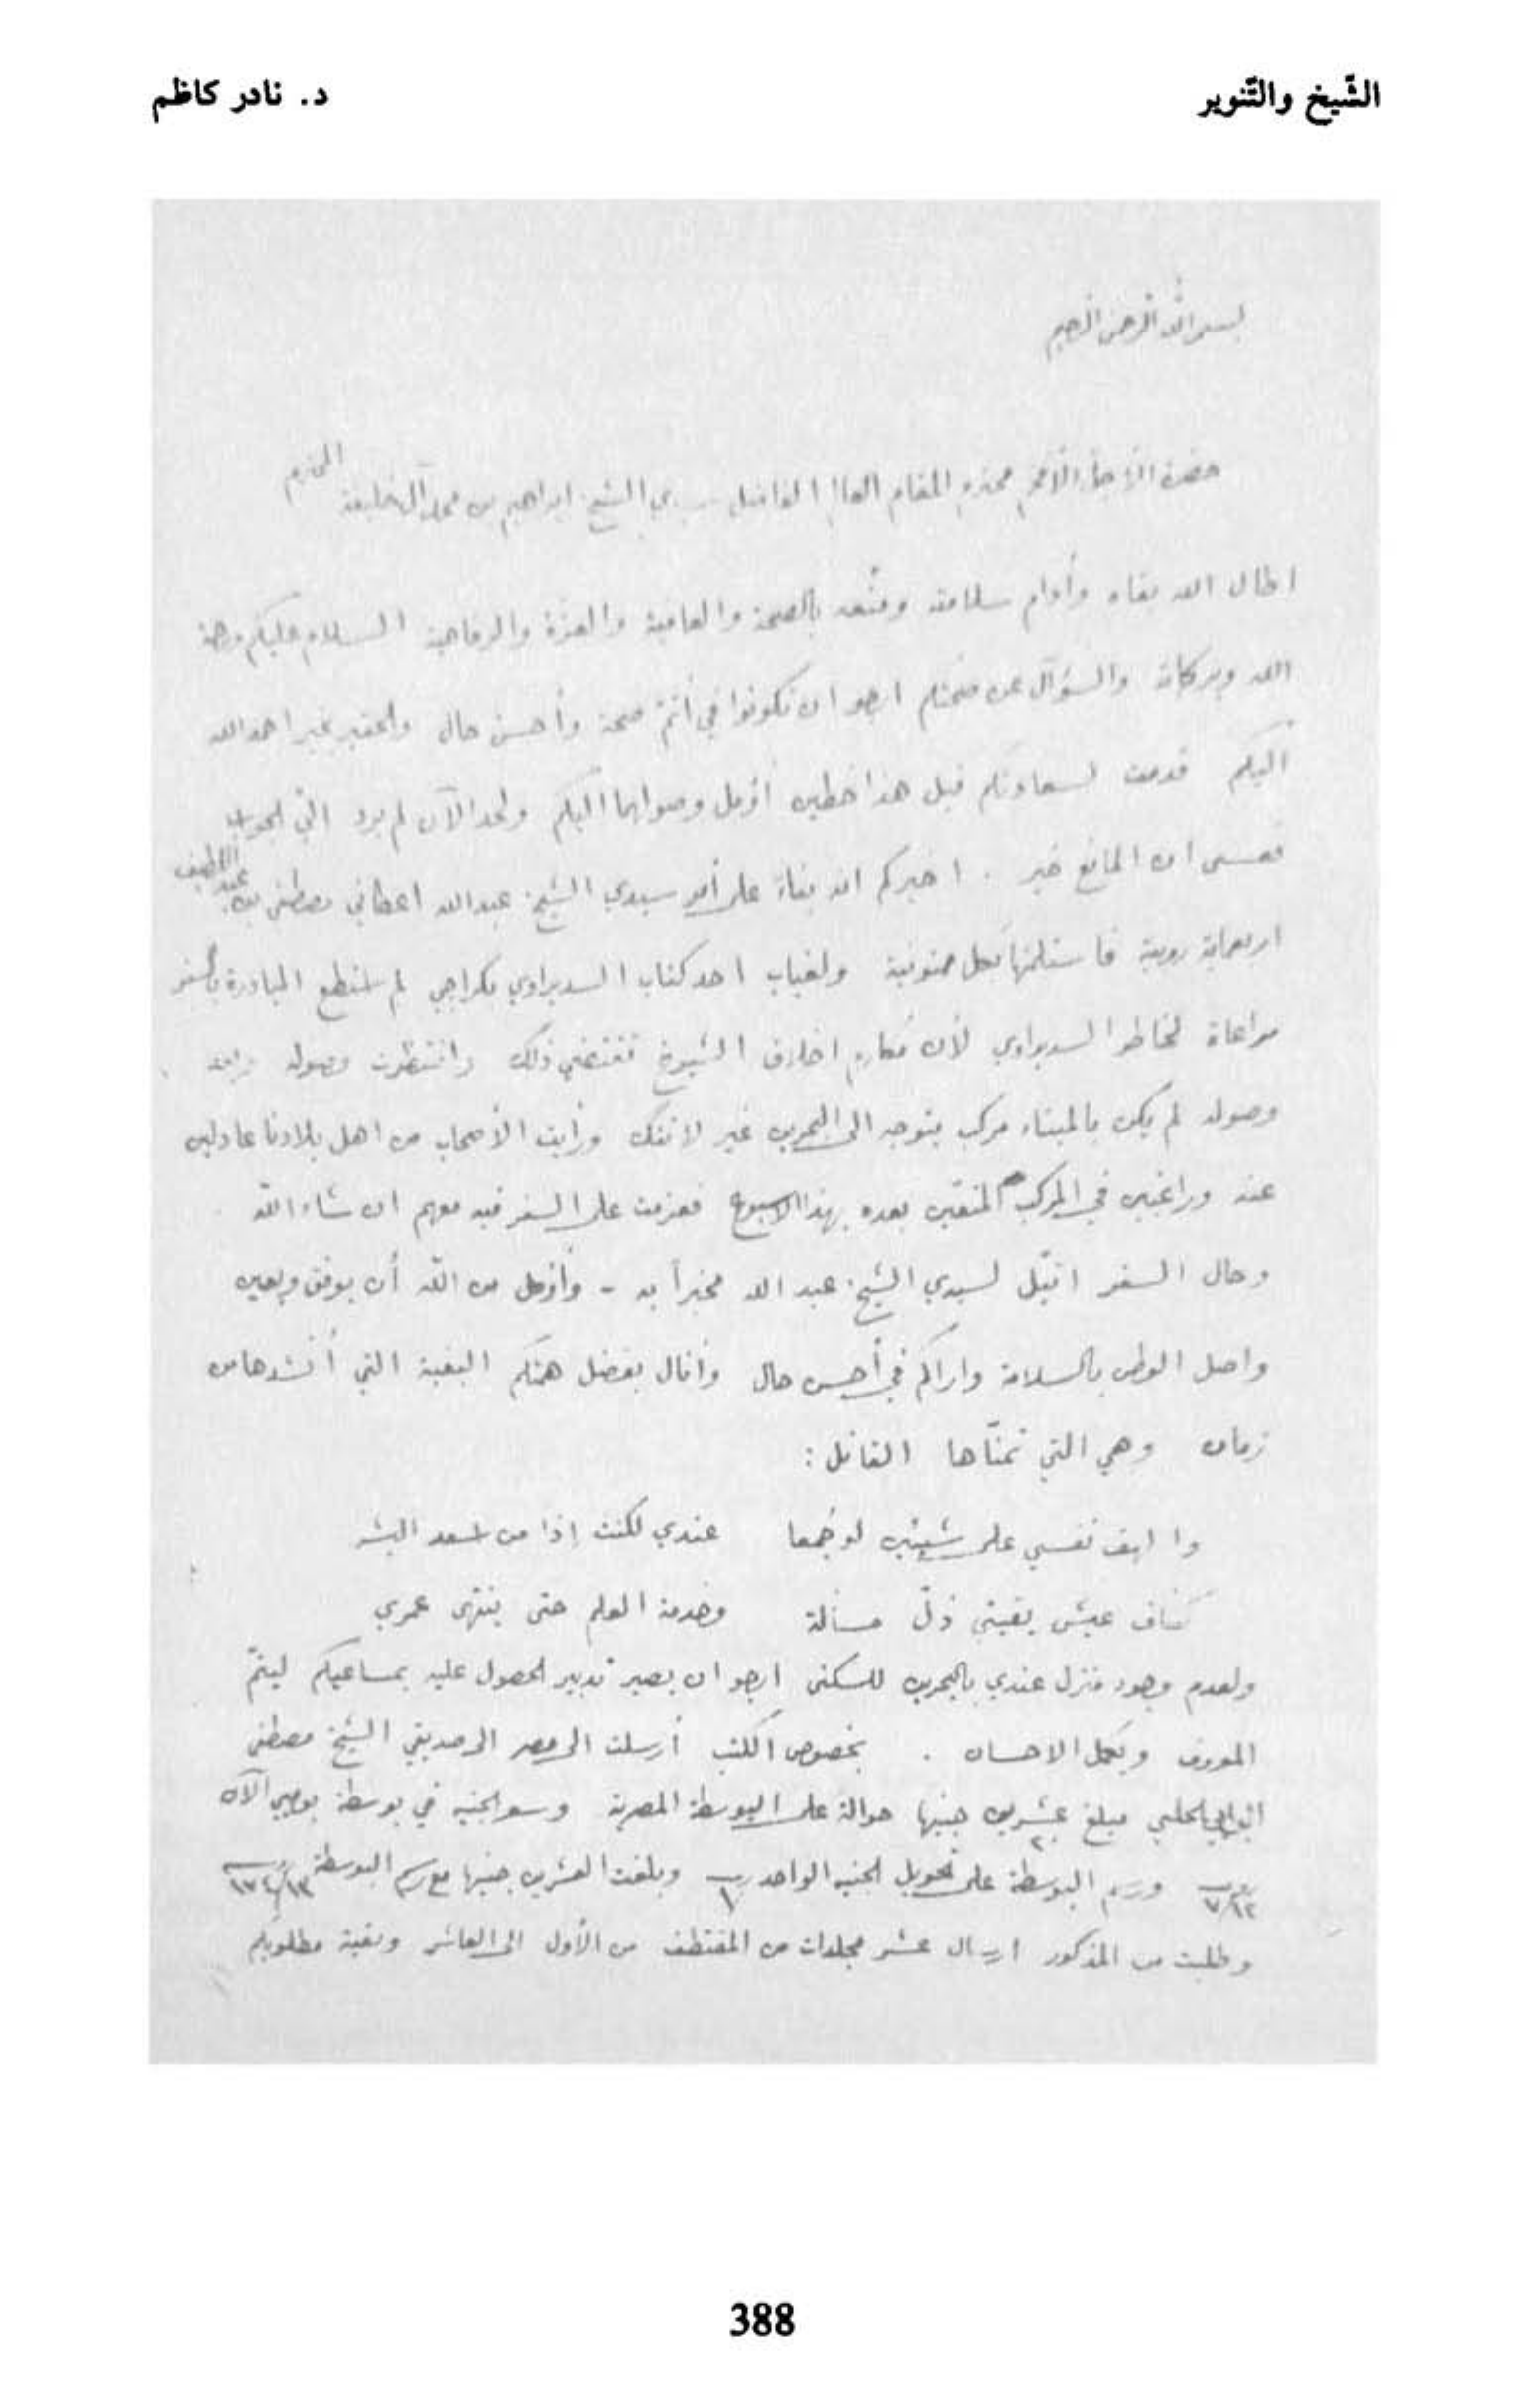 الشّيخ والتّنوير
د. نادر كاظم
بسم الله الرحمن الرحيم
حضرة الأجل الأفخم محترم المقام العالم الفاضل سيدي الشيخ ابراهيم بن محمد آل خليفة المحترم
اطال الله بقاه وأدام سلامته ومتّعه بالصحة والعافية والعزة والرفاهية السلام عليكم ورحمة
الله وبركاته والسؤال عن صحتكم ارجو ان تكونوا في أتمّ صحة وأحسن حال والحقير بخير احمد الله
اليكم قدمت لسعادتكم قبل هذا خطين أؤمل وصولهما اليكم ولحد الآن لم يرد اليّ الجواب
فعسى ان المانع خير . اخبركم انه بناءً على أمر سيدي الشيخ عبدالله اعطاني مصطفى بن عبد اللطيف
اربعماية روبية فاستلمتها بكل ممنونية ولغياب احد كتاب السديراوي بكراچي لم استطع المبادرة بالسفر
مراعاة لخاطر السديراوي لأن مكارم اخلاق الشيوخ تقتضي ذلك وانتظرت وصوله وبعد
وصوله لم يكن بالميناء مركب يتوجه الى البحرين غير ورأيت الأصحاب من اهل بلادنا عادلين
عنه وراغبين في المركب المتعين بعده بهذا الاسبوع فعزمت على السفر فيه معهم ان شاء الله
وحال السفر اتيّل لسيدي الشيخ عبد الله مخبراً به - وأؤمل من الله أن يوفق ويعين
واصل الوطن بالسلامة واراكم في أحسن حال وأنال بفضل همتكم البغية التي أنشدها من
زمان وهي التي تمنّاها القائل :
وا لهف نفسي على شيئين لو جُمعا عندي لكنت إذا من اسعد البشر
كفاف عيش يقيني ذلّ مسألة وخدمة العلم حتى ينتهى عمري
ولعدم وجود منزل عندي بالبحرين للسكنى ارجو ان يصير تدبير الحصول عليه بمساعيكم ليتمّ
المعروف ويكمل الاحسان . بخصوص الكتب أرسلت الى مصر الى صديقي الشيخ مصطفى
البابي الحلبي مبلغ عشرين ٢٠ جنيها حوالة على البوسطة المصرية وسعر الجنيه في بوسطة بومبي الآن
١٣/٧ ورسم البوسطة على تحويل الجنيه الواحد ١ وبلغت العشرين جنيها مع رسم البوسطة
وطلبت من المذكور ارسال عشر مجلدات من المقتطف من الأول الى العاشر وبقية مطلوبكم
388